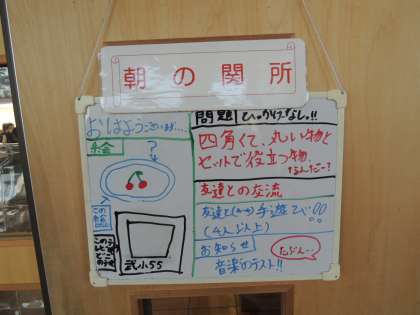 朝の関所
おはようございます…
絵
?
この絵
武小55
問題 ひっかけなし!!
四角くて、丸い物と
セットで役立つ物、
なんだー?
友達との交流
手遊び
(4人以上)
お知らせ
たぶん…
音楽のテスト!!